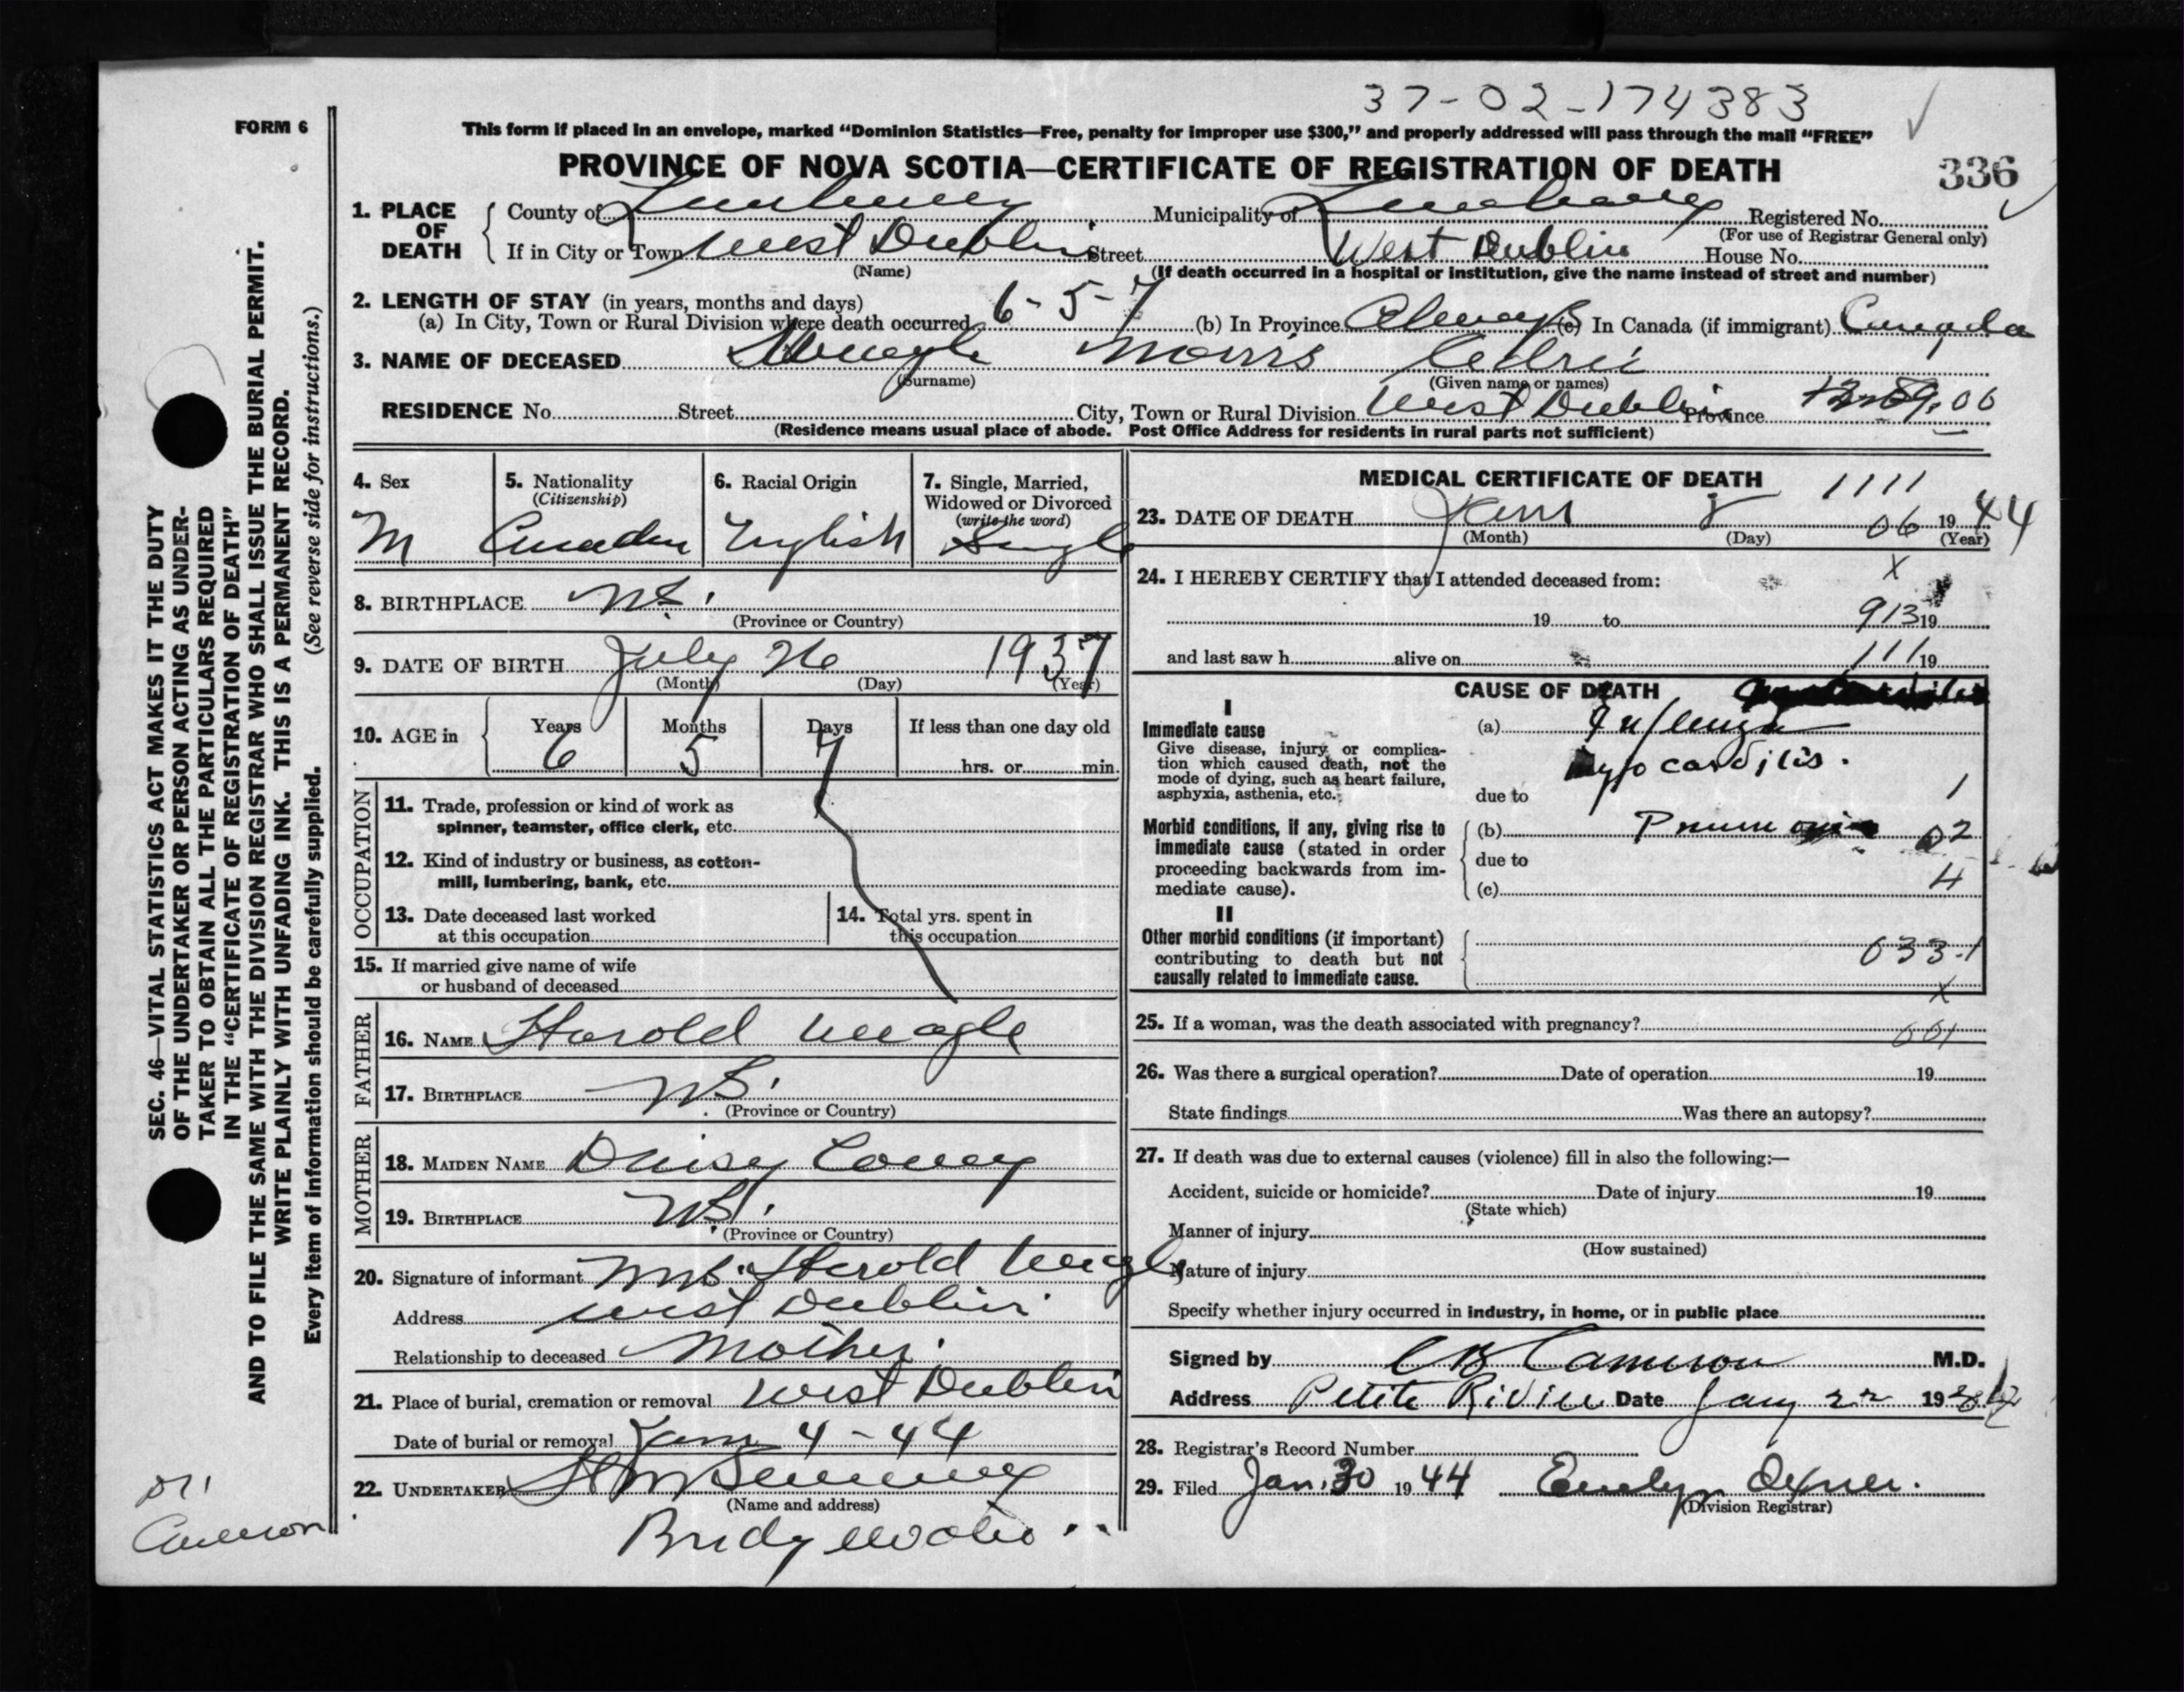 37-02-174383
FORM 6
This form if placed in an envelope, marked “Dominion Statistics—Free, penalty for improper use $300,” and properly addressed will pass through the mail “FREE”
PROVINCE OF NOVA SCOTIA—CERTIFICATE OF REGISTRATION OF DEATH
336
1. PLACE OF DEATH
County of Lunenburg Municipality of Lunenburg Registered No.
(For use of Registrar General only)
If in City or Town West Dublin Street West Dublin House No.
(Name)
(If death occurred in a hospital or institution, give the name instead of street and number)
2. LENGTH OF STAY (in years, months and days)
(a) In City, Town or Rural Division where death occurred 6-5-7 (b) In Province Always (c) In Canada (if immigrant) Canada
3. NAME OF DECEASED Morris
(Surname) (Given name or names)
RESIDENCE No. Street City, Town or Rural Division West Dublin Province
(Residence means usual place of abode. Post Office Address for residents in rural parts not sufficient)
4. Sex
M
5. Nationality
(Citizenship)
6. Racial Origin
English
7. Single, Married,
Widowed or Divorced
(write the word)
Single
8. BIRTHPLACE N.S.
(Province or Country)
9. DATE OF BIRTH July 26 1937
(Month) (Day) (Year)
10. AGE in
Years Months Days If less than one day old
6 5 7 hrs. or min.
OCCUPATION
11. Trade, profession or kind of work as
spinner, teamster, office clerk, etc.
12. Kind of industry or business, as cotton-
mill, lumbering, bank, etc.
13. Date deceased last worked
at this occupation
14. Total yrs. spent in
this occupation
15. If married give name of wife
or husband of deceased
FATHER
16. NAME Harold
17. BIRTHPLACE N.S.
(Province or Country)
MOTHER
18. MAIDEN NAME Daisy
19. BIRTHPLACE N.S.
(Province or Country)
20. Signature of informant Mrs. Harold
Address West Dublin
Relationship to deceased Mother
21. Place of burial, cremation or removal West Dublin
Date of burial or removal Jan 4-44
22. UNDERTAKER
(Name and address)
Bridgewater
MEDICAL CERTIFICATE OF DEATH
1111
23. DATE OF DEATH Jan 06 1944
(Month) (Day) (Year)
X
24. I HEREBY CERTIFY that I attended deceased from:
19 to 913 19
and last saw h alive on 111 19
CAUSE OF DEATH
I
Immediate cause
Give disease, injury or complica-
tion which caused death, not the
mode of dying, such as heart failure,
asphyxia, asthenia, etc.
(a) Influenza
Myocarditis.
due to 1
Morbid conditions, if any, giving rise to
immediate cause (stated in order
proceeding backwards from im-
mediate cause).
(b) Pneumonia 02
due to
(c) 4
II
Other morbid conditions (if important)
contributing to death but not
causally related to immediate cause.
033-1
X
25. If a woman, was the death associated with pregnancy?
26. Was there a surgical operation? Date of operation 19
State findings Was there an autopsy?
27. If death was due to external causes (violence) fill in also the following:—
Accident, suicide or homicide? Date of injury 19
(State which)
Manner of injury
(How sustained)
Nature of injury
Specify whether injury occurred in industry, in home, or in public place
Signed by Cameron M.D.
Address Petite Riviere Date Jany 19
28. Registrar's Record Number
29. Filed Jan. 30 1944 Evelyn Oxner.
(Division Registrar)
SEC. 46—VITAL STATISTICS ACT MAKES IT THE DUTY
OF THE UNDERTAKER OR PERSON ACTING AS UNDER-
TAKER TO OBTAIN ALL THE PARTICULARS REQUIRED
IN THE “CERTIFICATE OF REGISTRATION OF DEATH”
AND TO FILE THE SAME WITH THE DIVISION REGISTRAR WHO SHALL ISSUE THE BURIAL PERMIT.
WRITE PLAINLY WITH UNFADING INK. THIS IS A PERMANENT RECORD.
Every item of information should be carefully supplied. (See reverse side for instructions.)
Dr
Cameron